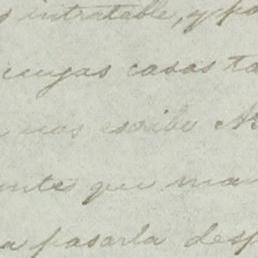 intratable, y po
cuyas casas ta
nos escribe
ente que man
a pasarla desp